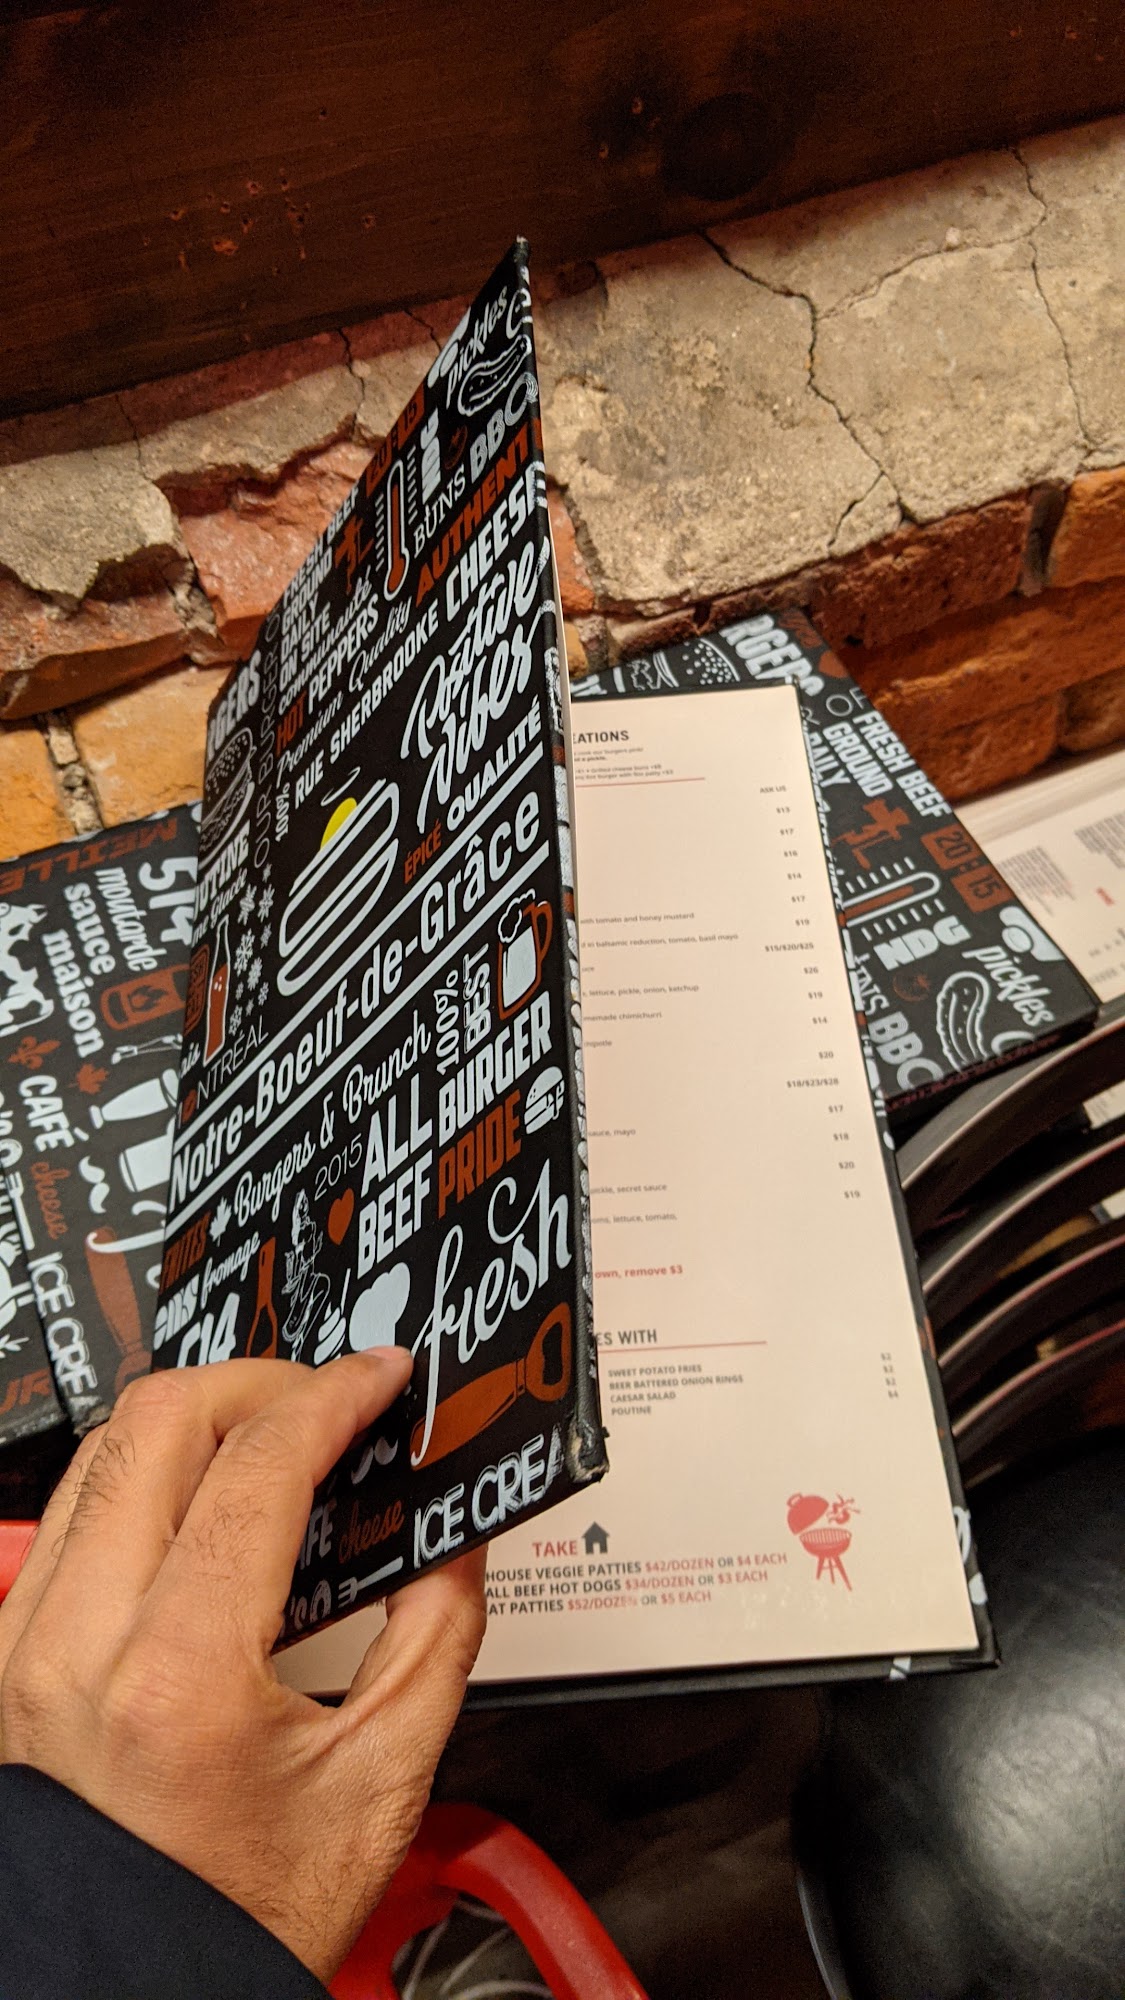 pickles
20:15
NDG
BUNS BBQ
AUTHENT
FRESH BEEF
GROUND
DAILY
ON SITE
communauté
HOT PEPPERS
Premium Quality
100% RUE SHERBROOKE CHEESE
Positive
Vibes
OUR BURGER
ÉPICÉ QUALITÉ
Notre-Boeuf-de-Grâce
Burgers & Brunch
2015
100%
BEST
ALL BURGER
BEEF PRIDE
FRITES
fromage
514
fresh
cheese
ICE CREA
514
moutarde
sauce
maison
CAFÉ
cheese
ICE CRE
OF
FRESH BEEF
GROUND
DAILY
20:15
NDG
pickles
BBQ
EATIONS
ASK US
$13
$17
$16
$14
$17
with tomato and honey mustard
$19
d in balsamic reduction, tomato, basil mayo
$15/$20/$25
$26
lettuce, pickle, onion, ketchup
$19
memade chimichurri
$14
$20
$18/$23/$28
$17
sauce, mayo
$18
$20
pickle, secret sauce
$19
oms, lettuce, tomato,
own, remove $3
ES WITH
SWEET POTATO FRIES $2
BEER BATTERED ONION RINGS $2
CAESAR SALAD $2
POUTINE $4
TAKE
HOUSE VEGGIE PATTIES $42/DOZEN OR $4 EACH
ALL BEEF HOT DOGS $34/DOZEN OR $3 EACH
AT PATTIES $52/DOZEN OR $5 EACH